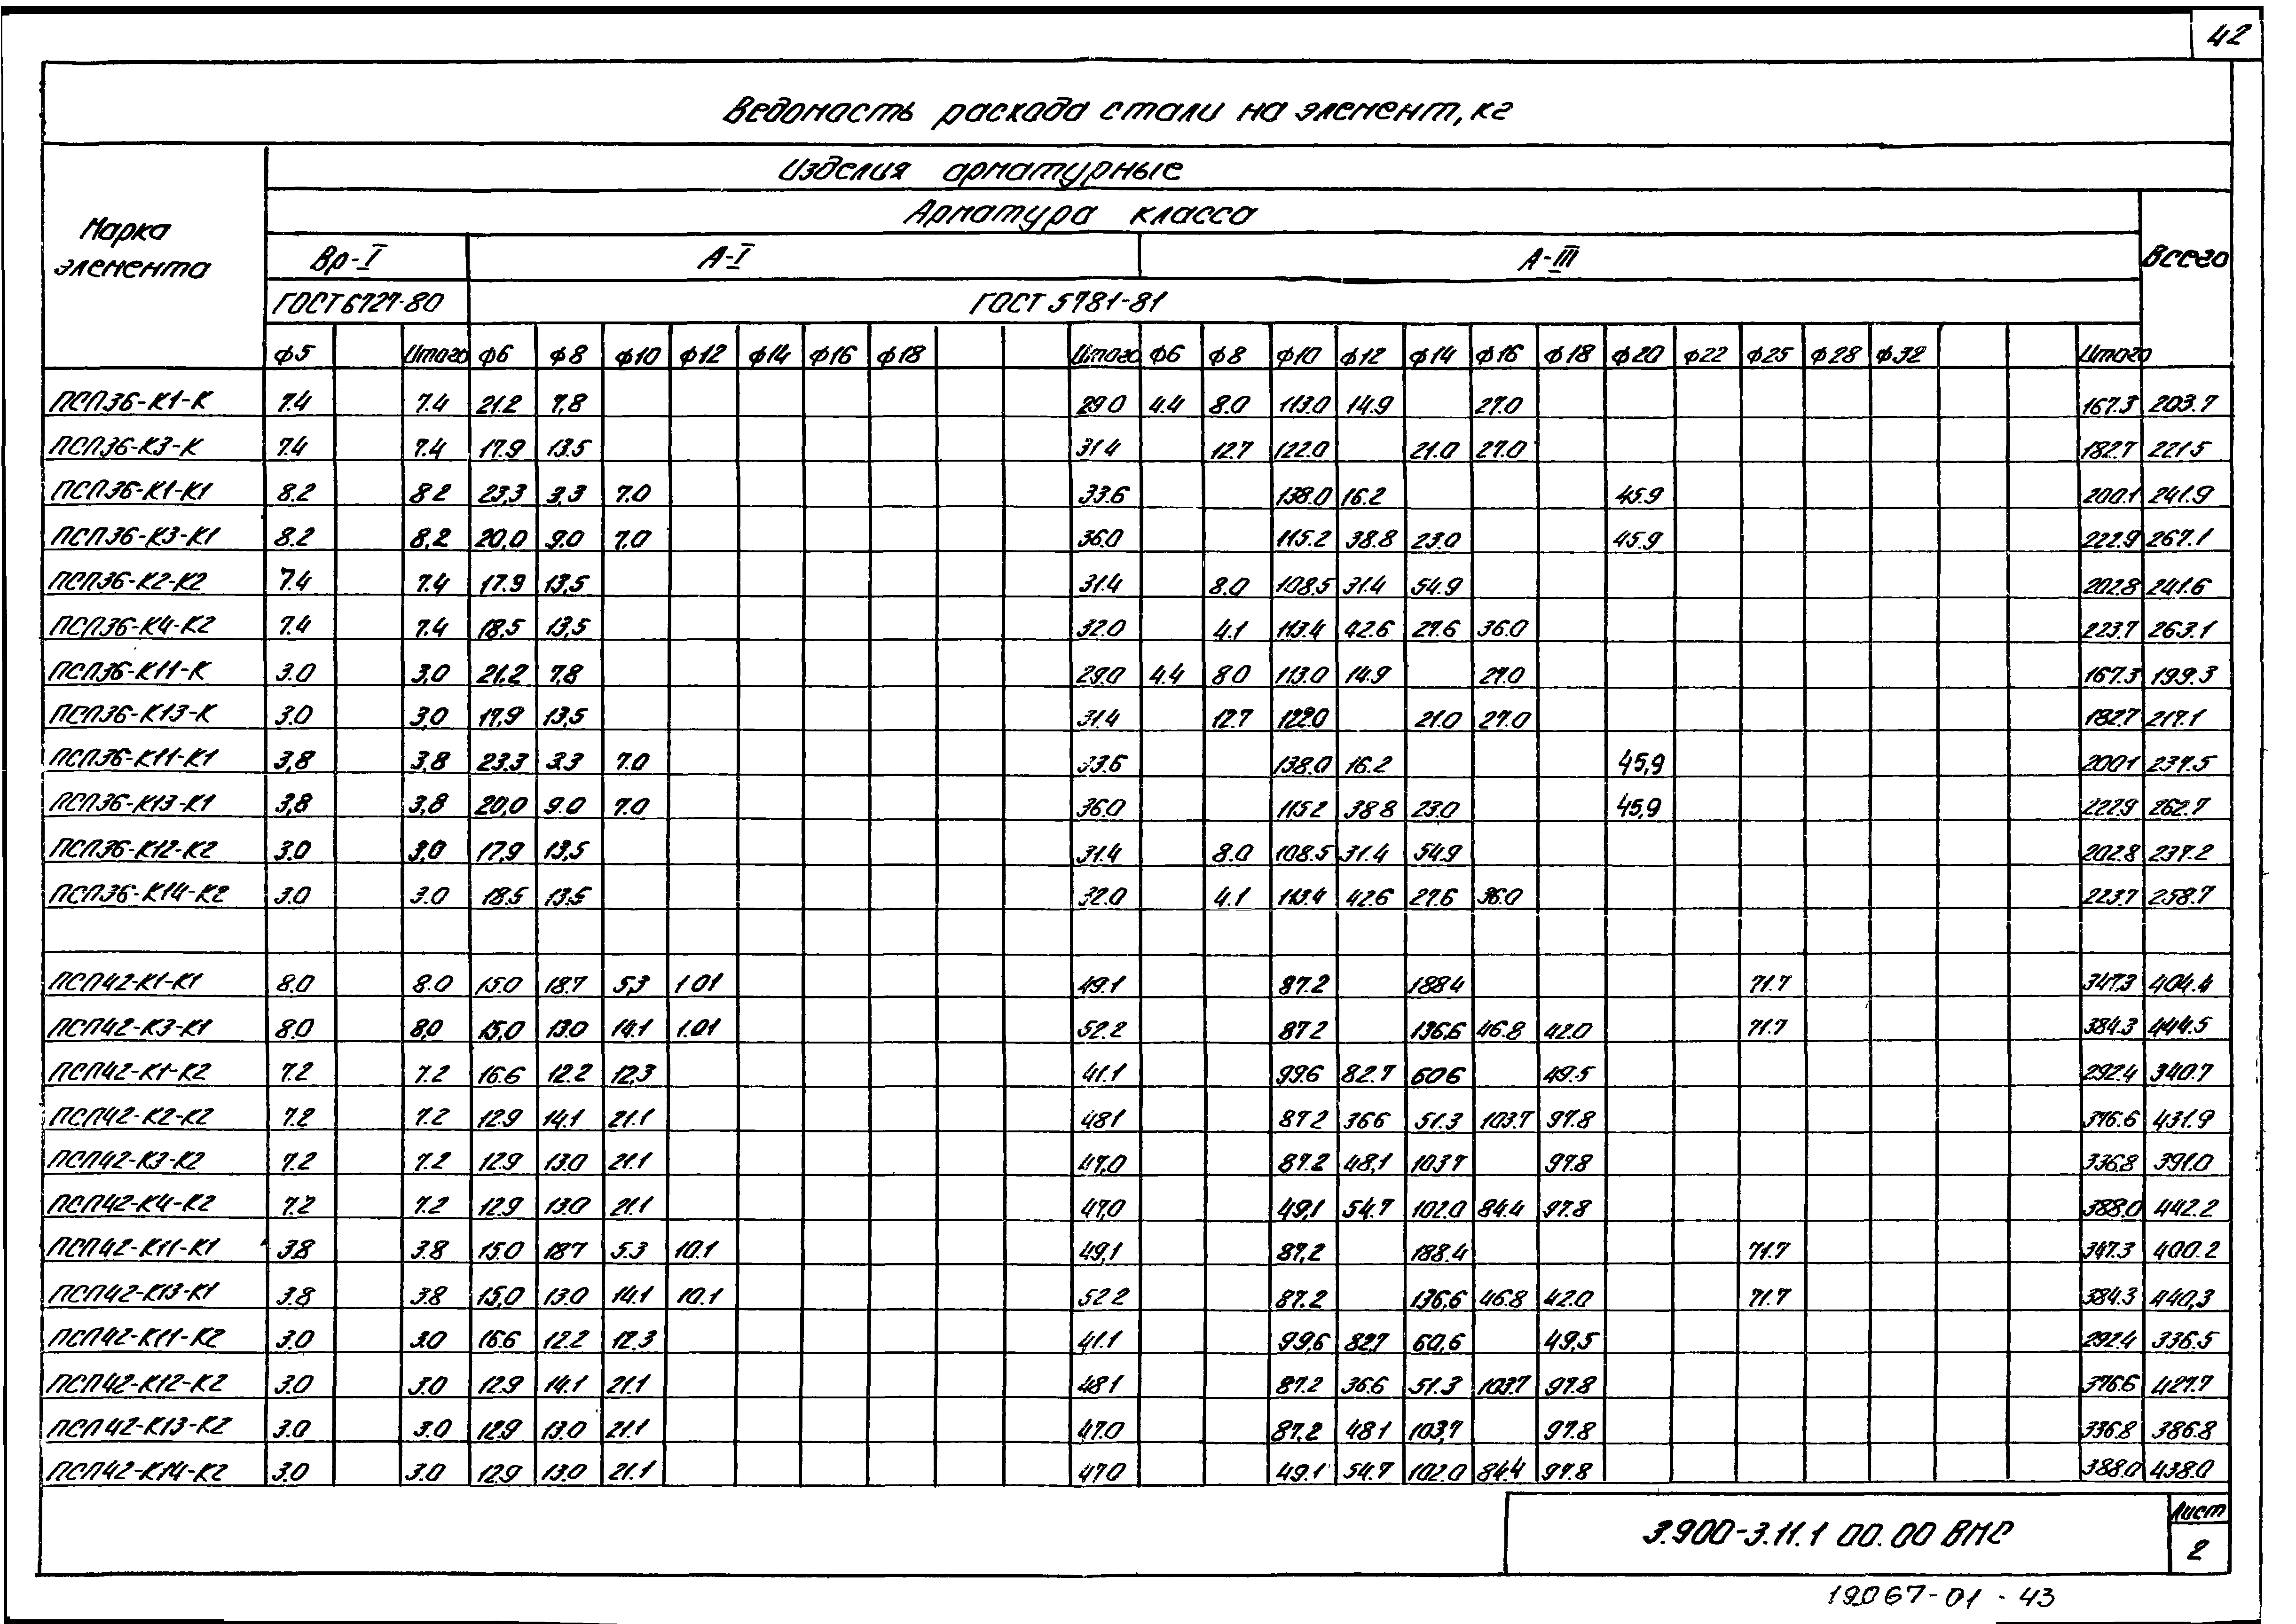 42
Ведомость расхода стали на элемент, кг
Марка элемента
Изделия арматурные
Арматура класса
Всего
Вр-I А-I А-III
ГОСТ 6727-80 ГОСТ 5781-81
ф5 Итого ф6 ф8 ф10 ф12 ф14 ф16 ф18 Итого ф6 ф8 ф10 ф12 ф14 ф16 ф18 ф20 ф22 ф25 ф28 ф32 Итого
ПСП36-К1-К 7.4 7.4 21.2 7,8 29.0 4.4 8.0 113.0 14.9 27.0 167.3 203.7
ПСП36-К3-К 7.4 7.4 17.9 13.5 31.4 12.7 122.0 21.0 27.0 182.7 221.5
ПСП36-К1-К1 8.2 8.2 23,3 3.3 7.0 33.6 138.0 16.2 45.9 200.1 241.9
ПСП36-К3-К1 8.2 8,2 20,0 9.0 7.0 36.0 115.2 38.8 23.0 45.9 222.9 267.1
ПСП36-К2-К2 7.4 7.4 17.9 13,5 31.4 8.0 108.5 31.4 54.9 202.8 241.6
ПСП36-К4-К2 7.4 7.4 18,5 13,5 32.0 4.1 113.4 42.6 27.6 36.0 223.7 263.1
ПСП36-К11-К 3.0 3,0 21.2 7,8 29.0 4.4 8.0 113.0 14.9 27.0 167.3 199.3
ПСП36-К13-К 3.0 3,0 17,9 13,5 31.4 12.7 122.0 21.0 27.0 182.7 217.1
ПСП36-К11-К1 3,8 3,8 23,3 3.3 7.0 33.6 138.0 16.2 45,9 200.1 237.5
ПСП36-К13-К1 3,8 3,8 20,0 9.0 7.0 36.0 115.2 38.8 23.0 45,9 222.9 262.7
ПСП36-К12-К2 3.0 3,0 17,9 13,5 31.4 8.0 108.5 31.4 54.9 202.8 237.2
ПСП36-К14-К2 3.0 3.0 18.5 13.5 32.0 4.1 113.4 42.6 27.6 36.0 223.7 258.7
ПСП42-К1-К1 8.0 8.0 15.0 18.7 5,3 1.01 49.1 87.2 188.4 71.7 347.3 404.4
ПСП42-К3-К1 8.0 8,0 15,0 13.0 14.1 1.01 52.2 87.2 136.6 46.8 42.0 71.7 384.3 444.5
ПСП42-К1-К2 7.2 7.2 16.6 12.2 12,3 41.1 99.6 82.7 60.6 49.5 292.4 340.7
ПСП42-К2-К2 7.2 7.2 12.9 14.1 21.1 48.1 87.2 36.6 51.3 103.7 97.8 376.6 431.9
ПСП42-К3-К2 7.2 7.2 12.9 13.0 21.1 47,0 87.2 48,1 103.7 97.8 336.8 391.0
ПСП42-К4-К2 7.2 7.2 12.9 13.0 21.1 47,0 49,1 54.7 102.0 84.4 97.8 388,0 442.2
ПСП42-К11-К1 3.8 3.8 15.0 18.7 5.3 10.1 49,1 87,2 188.4 71.7 347.3 400.2
ПСП42-К13-К1 3.8 3.8 15,0 13.0 14.1 10.1 52.2 87.2 136,6 46.8 42.0 71.7 384.3 440,3
ПСП42-К11-К2 3.0 3.0 16.6 12.2 12.3 41.1 99,6 82,7 60,6 49,5 292.4 336.5
ПСП42-К12-К2 3.0 3.0 12.9 14.1 21.1 48.1 87.2 36.6 51.3 103.7 97.8 376.6 427.7
ПСП42-К13-К2 3.0 3.0 12.9 13.0 21.1 47.0 87,2 48.1 103,7 97.8 336.8 386.8
ПСП42-К14-К2 3.0 3.0 12.9 13.0 21.1 47.0 49.1 54.7 102.0 84.4 97.8 388.0 438.0
3.900-3.11.1 00.00 ВМС
Лист
2
19067-01 - 43